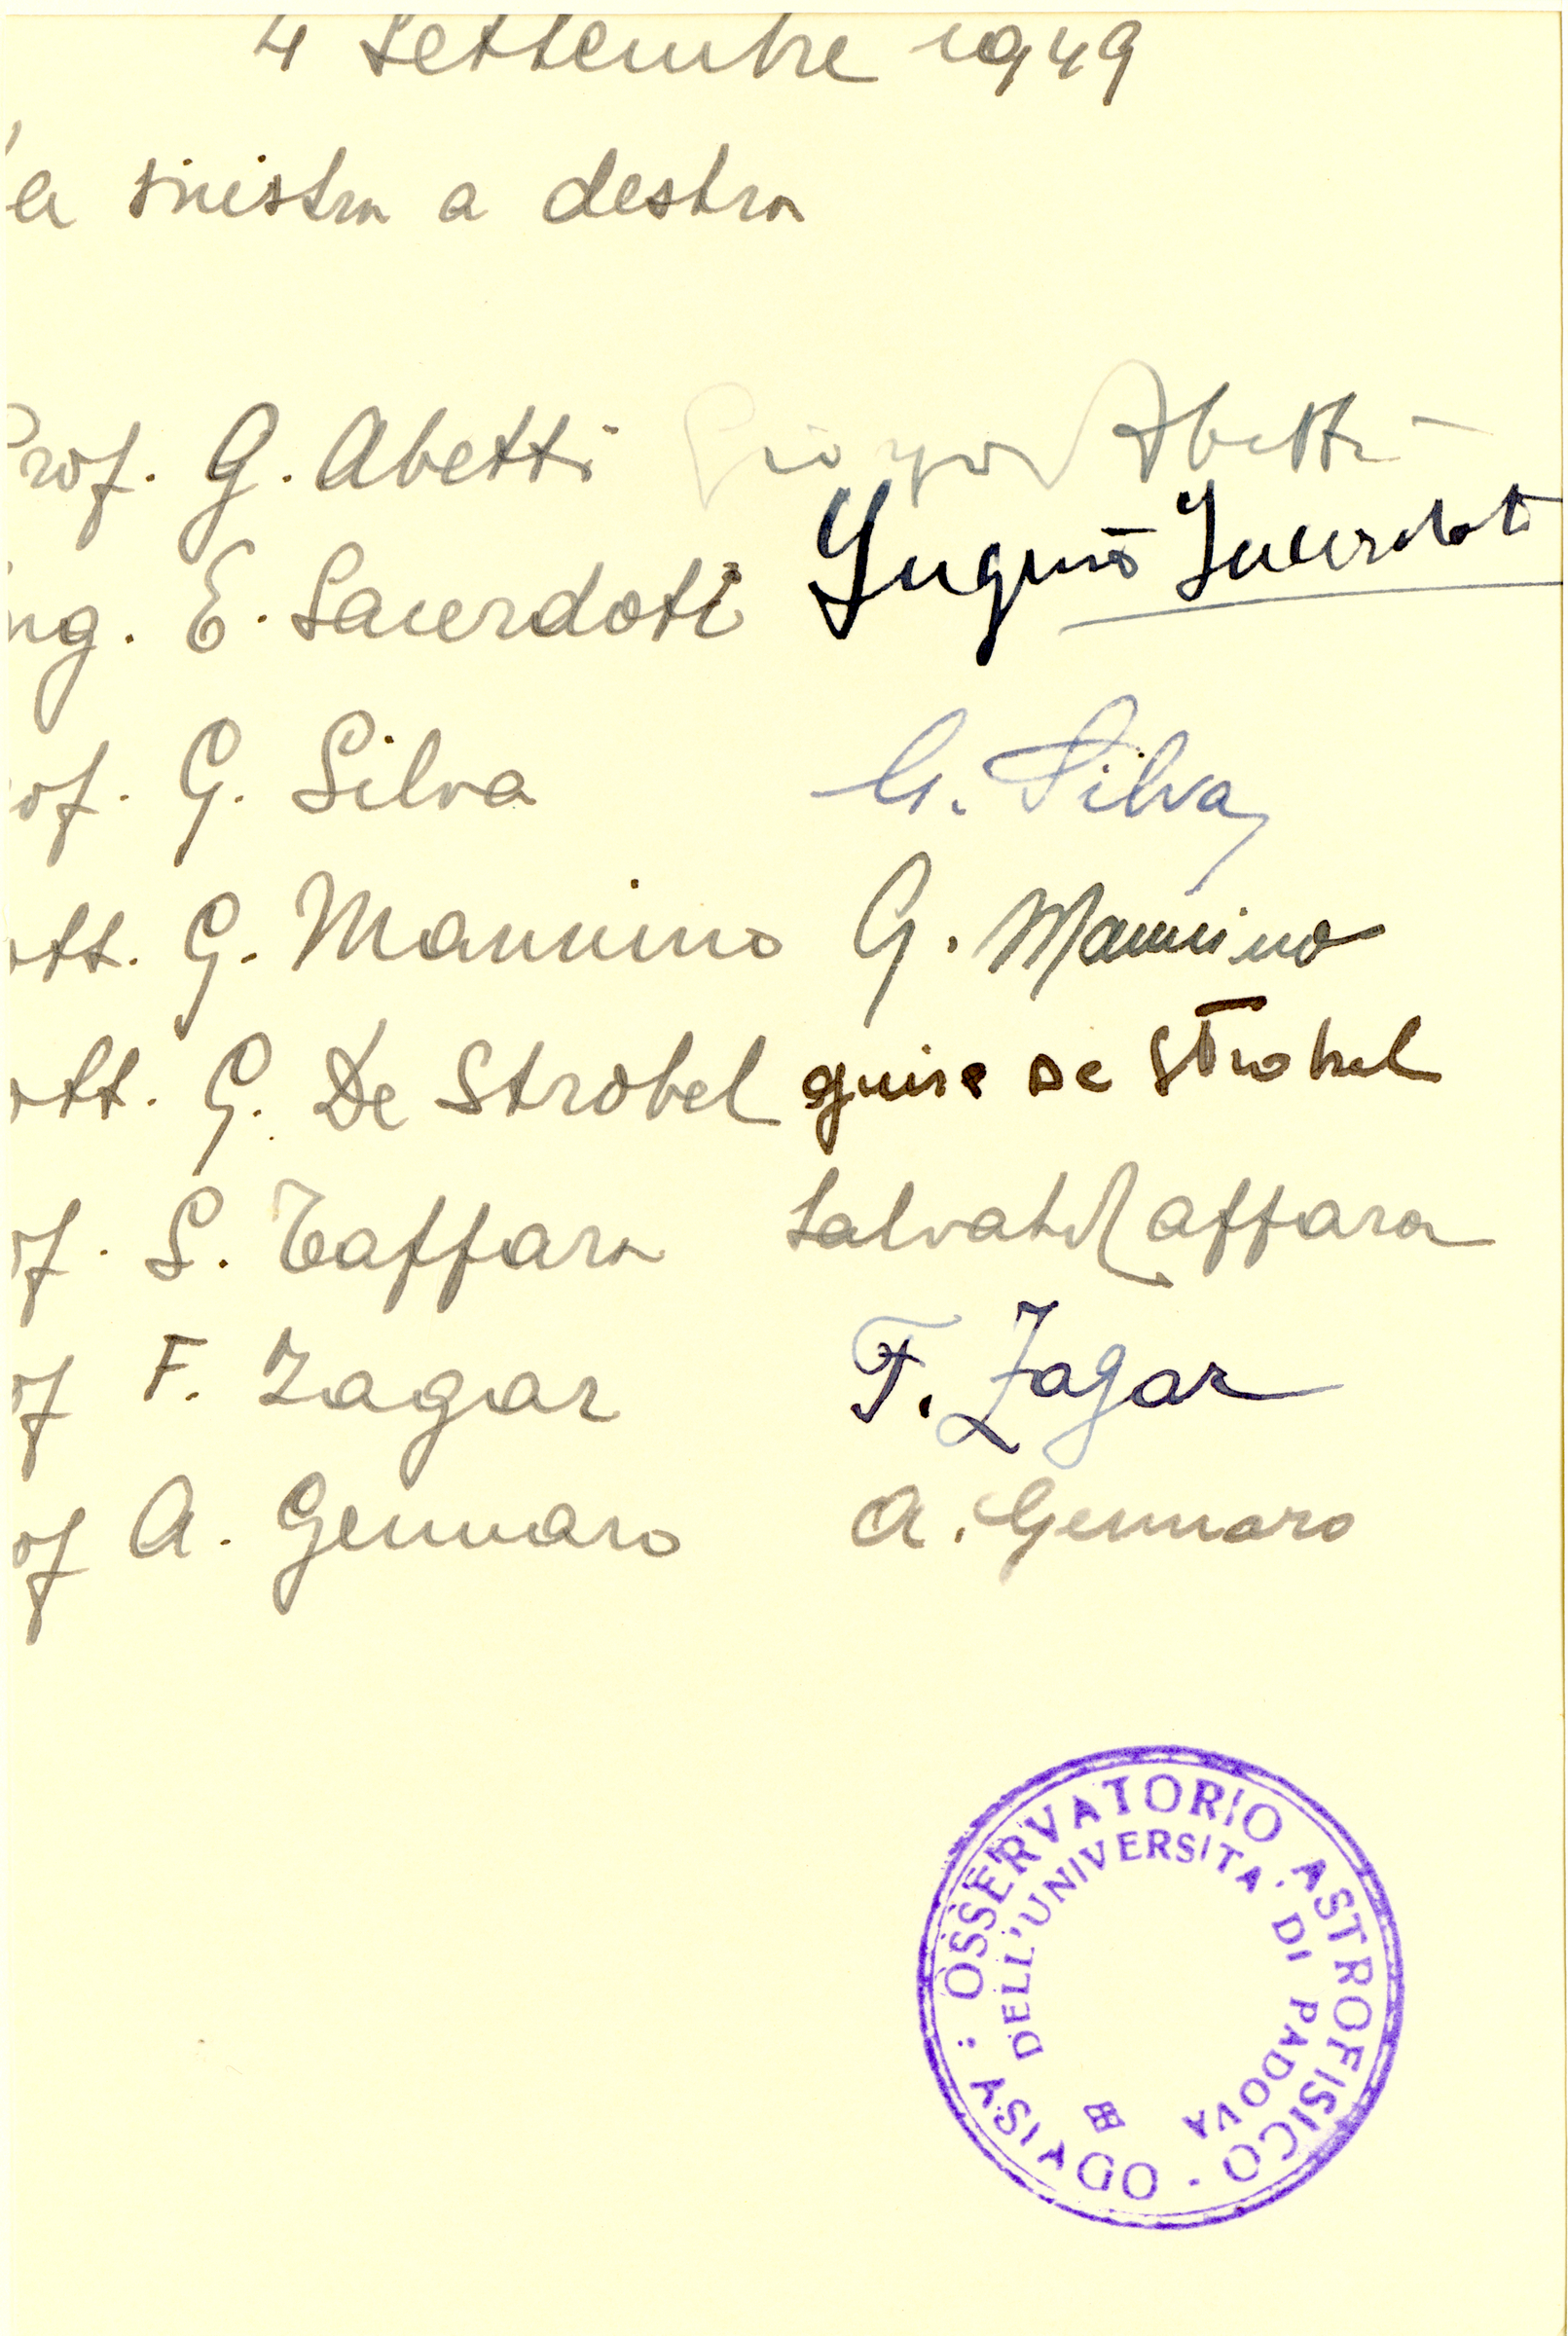 4 Settembre 1949
a sinistra a destra
Prof. G. Abetti Giorgio Abetti
ng. E. Sacerdoti Eugenio Sacerdoti
of. G. Silva G. Silva
ott. G. Mannino G. Mannino
ott. G. De Strobel De Strobel
of. S. Taffara Salvatore Taffara
of F. Zagar F. Zagar
of A. Gennaro A. Gennaro
: OSSERVATORIO ASTROFISICO · ASIAGO
DELL'UNIVERSITA' DI PADOVA